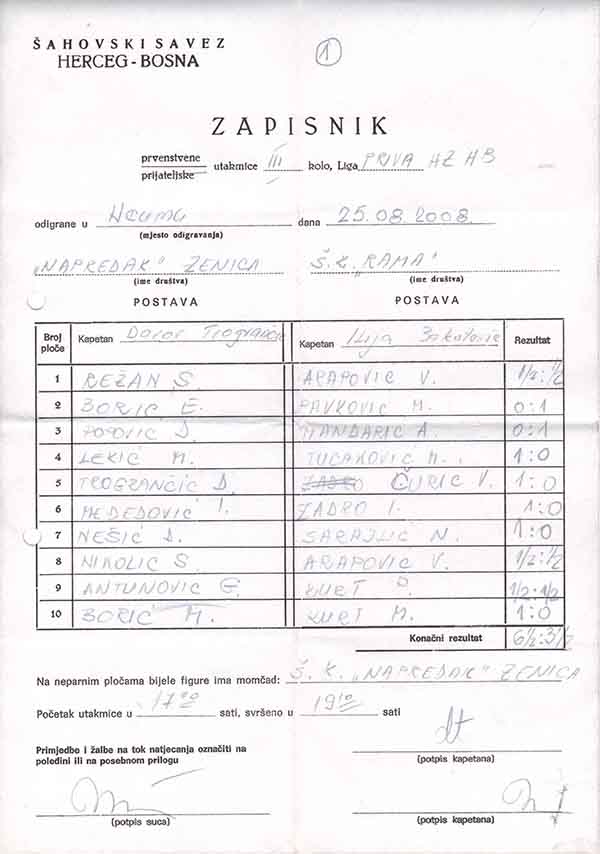 ŠAHOVSKI SAVEZ
HERCEG - BOSNA
1
ZAPISNIK
prvenstvene
prijateljske
utakmice III kolo, Liga PRIVA HŽ HB
odigrane u Neumu dana 25.08.2008.
(mjesto odigravanja)
„NAPREDAK“ ZENICA Š.K. „RAMA“
(ime društva) (ime društva)
POSTAVA POSTAVA
Broj ploče Kapetan Davor Trogrančić Kapetan Ilija Rezultat
1 REŽAN S. ARAPOVIĆ V. 1/2:1/2
2 BORIĆ E. PAVKOVIĆ M. 0:1
3 POPOVIĆ D. MANDARIĆ A. 0:1
4 LEKIĆ M. TUCAKOVIĆ M. 1:0
5 TROGRANČIĆ D. ZADRO ČURIĆ V. 1:0
6 MEDEDOVIĆ I. ZADRO I. 1:0
7 NEŠIĆ D. SARAJLIĆ N. 1:0
8 NIKOLIĆ S. ARAPOVIĆ V. 1/2:1/2
9 ANTUNOVIĆ G. KURT P. 1/2:1/2
10 BORIĆ M. KURT M. 1:0
Konačni rezultat 6½:3½
Na neparnim pločama bijele figure ima momčad: Š.K. „NAPREDAK“ ZENICA
Početak utakmice u 17 00 sati, svršeno u 19 10 sati
Primjedbo i žalbe na tok natjecanja označiti na
poleđini ili na posebnom prilogu
(potpis kapetana)
(potpis suca) (potpis kapetana)